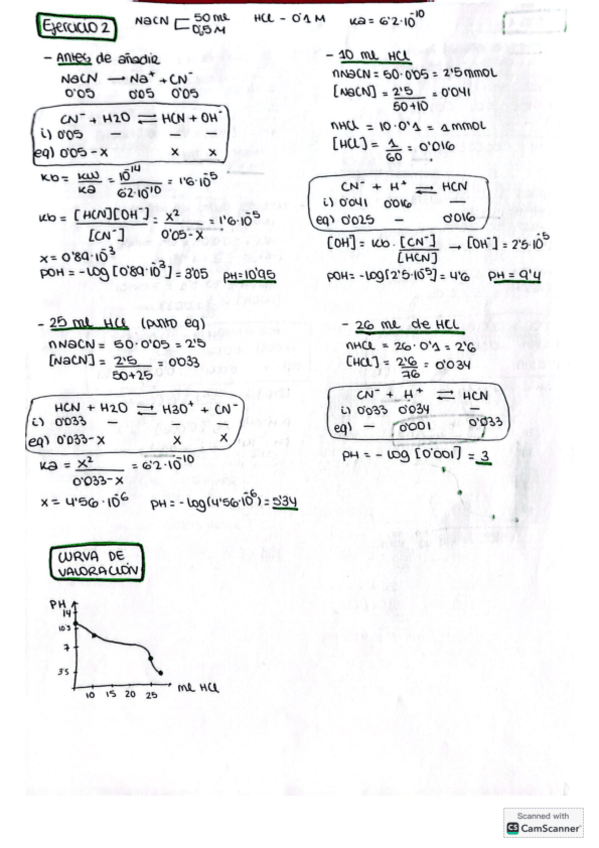 Ejercicio 2
NaCN 50 ml HCl - 0'1 M Ka = 6'2·10⁻¹⁰
0,5 M
- Antes de añadir
NaCN → Na⁺ + CN⁻
0'05 0'05 0'05
CN⁻ + H2O ⇌ HCN + OH⁻
i) 0'05 — — —
eq) 0'05-x x x
Kb = Kw/Ka = 10⁻¹⁴/6'2·10⁻¹⁰ = 1'6·10⁻⁵
Kb = [HCN][OH⁻]/[CN⁻] = x²/0'05-x = 1'6·10⁻⁵
x = 0'89·10⁻³
pOH = -log[0'89·10⁻³] = 3'05 pH = 10'95
- 10 ml HCl
nNaCN = 50·0'05 = 2'5 mmol
[NaCN] = 2'5/50+10 = 0'041
nHCl = 10·0'1 = 1 mmol
[HCl] = 1/60 = 0'016
CN⁻ + H⁺ ⇌ HCN
i) 0'041 0'016 —
eq) 0'025 — 0'016
[OH⁻] = Kb·[CN⁻]/[HCN] → [OH⁻] = 2'5·10⁻⁵
pOH = -log[2'5·10⁻⁵] = 4'6 pH = 9'4
- 25 ml HCl (punto eq)
nNaCN = 50·0'05 = 2'5
[NaCN] = 2'5/50+25 = 0'033
HCN + H2O ⇌ H3O⁺ + CN⁻
i) 0'033 — — —
eq) 0'033-x x x
Ka = x²/0'033-x = 6'2·10⁻¹⁰
x = 4'56·10⁻⁶ pH = -log(4'56·10⁻⁶) = 5'34
- 26 ml de HCl
nHCl = 26·0'1 = 2'6
[HCl] = 2'6/76 = 0'034
CN⁻ + H⁺ ⇌ HCN
i) 0'033 0'034 —
eq) — 0'001 0'033
pH = -log [0'001] = 3
CURVA DE
VALORACIÓN
pH
14
10'5
7
3'5
10 15 20 25 ml HCl
Scanned with
CS CamScanner